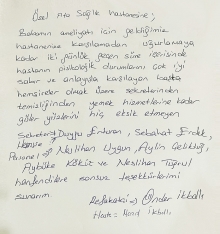 Özel Ata Sağlık Hastanesine;
Babamın ameliyatı için geldiğimiz
hastanenize karşılamadan uğurlamaya
kadar iki günlük geçen süre içerisinde
hastanın psikolojik durumlarını çok iyi
sabır ve anlayışla karşılayan başta
hemşireler olmak üzere sekreterinden
temizliğinden yemek hizmetlerine kadar
güler yüzlerini hiç eksik etmeyen
Sekreter Duygu Erturan, Sebahat Erdek,
Hemşire
Personel Neslihan Uygun, Aylin Çelikbağ,
Aybüke Kökût ve Neslihan Tuğrul
hanfendilere sonsuz teşekkürlerimi
sunarım
Refakatçi Önder İkballı
Hasta = İkballı